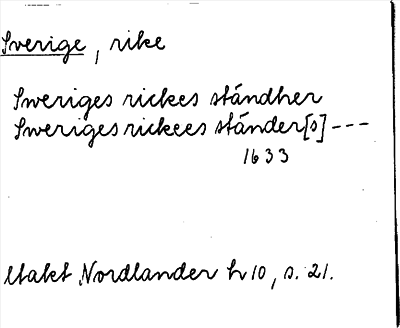 Sverige, rike
Sweriges rickes ständher
Sweriges rickees ständer[s] ---
1633
Makt Nordlander h 10, s. 21.